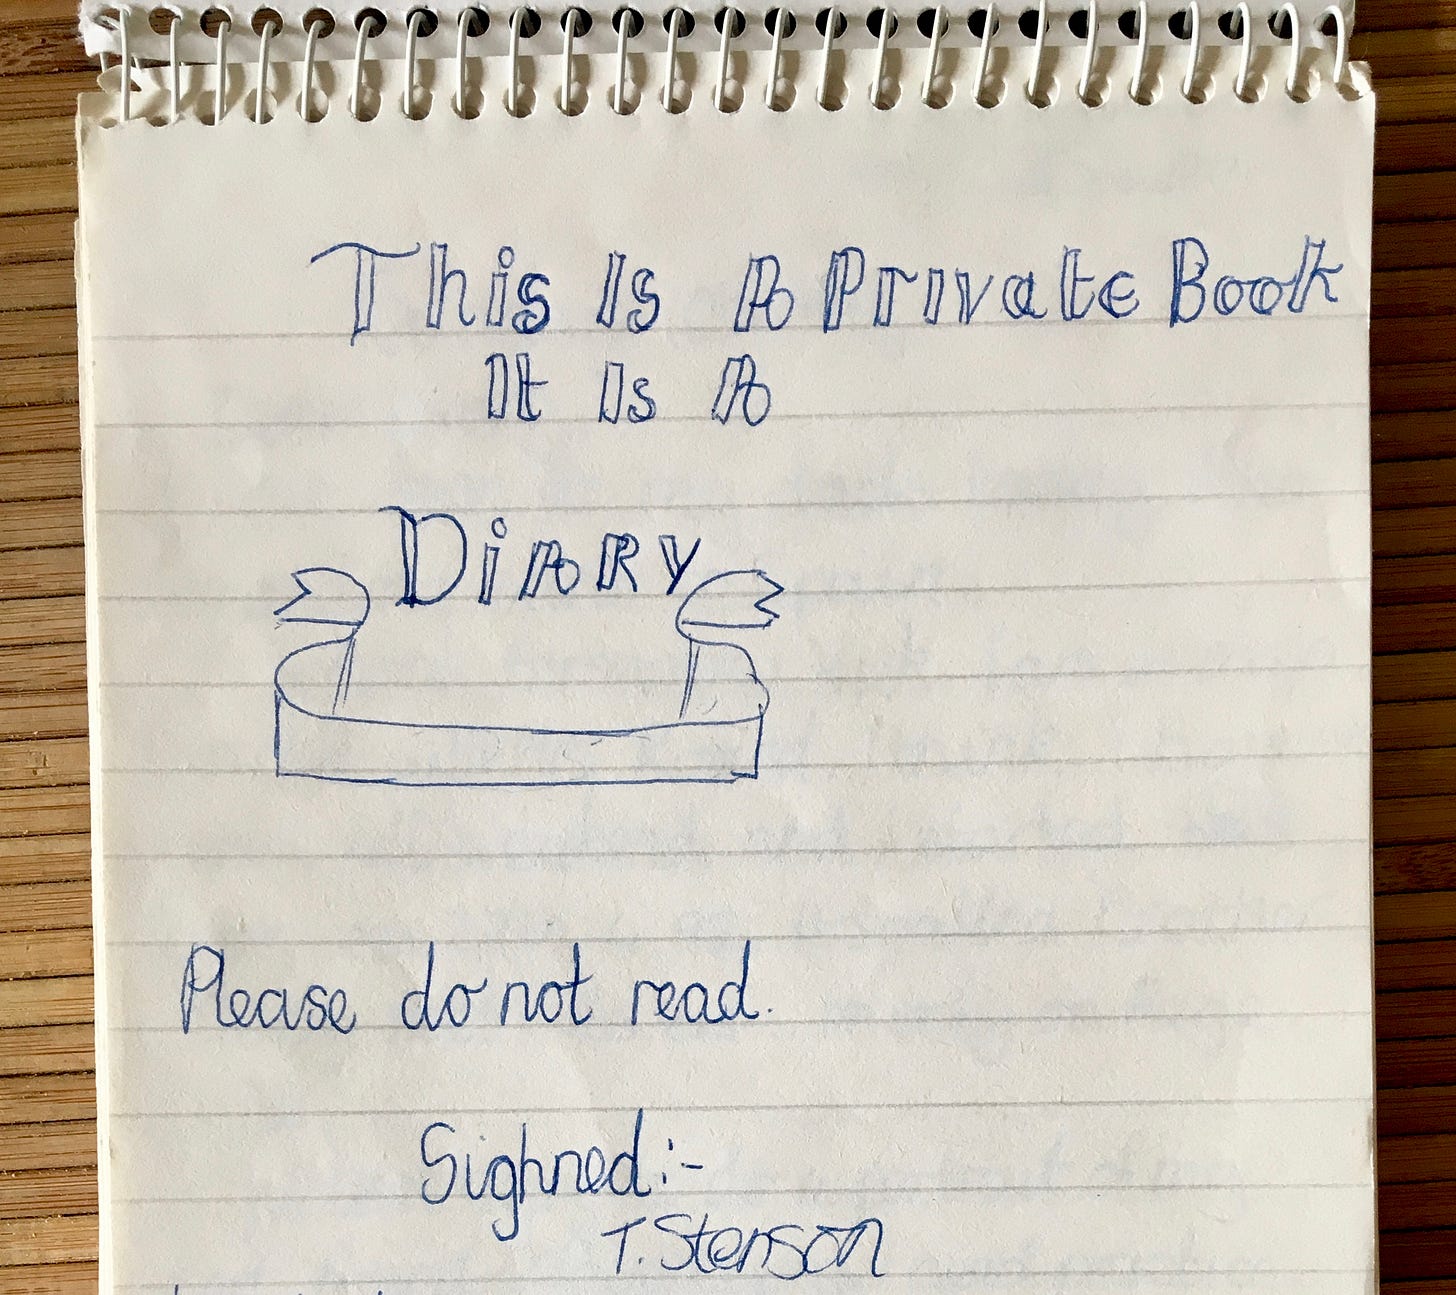 This Is A Private Book
It Is A
DiARY
Please do not read.
Sighned:-
T. Stenson